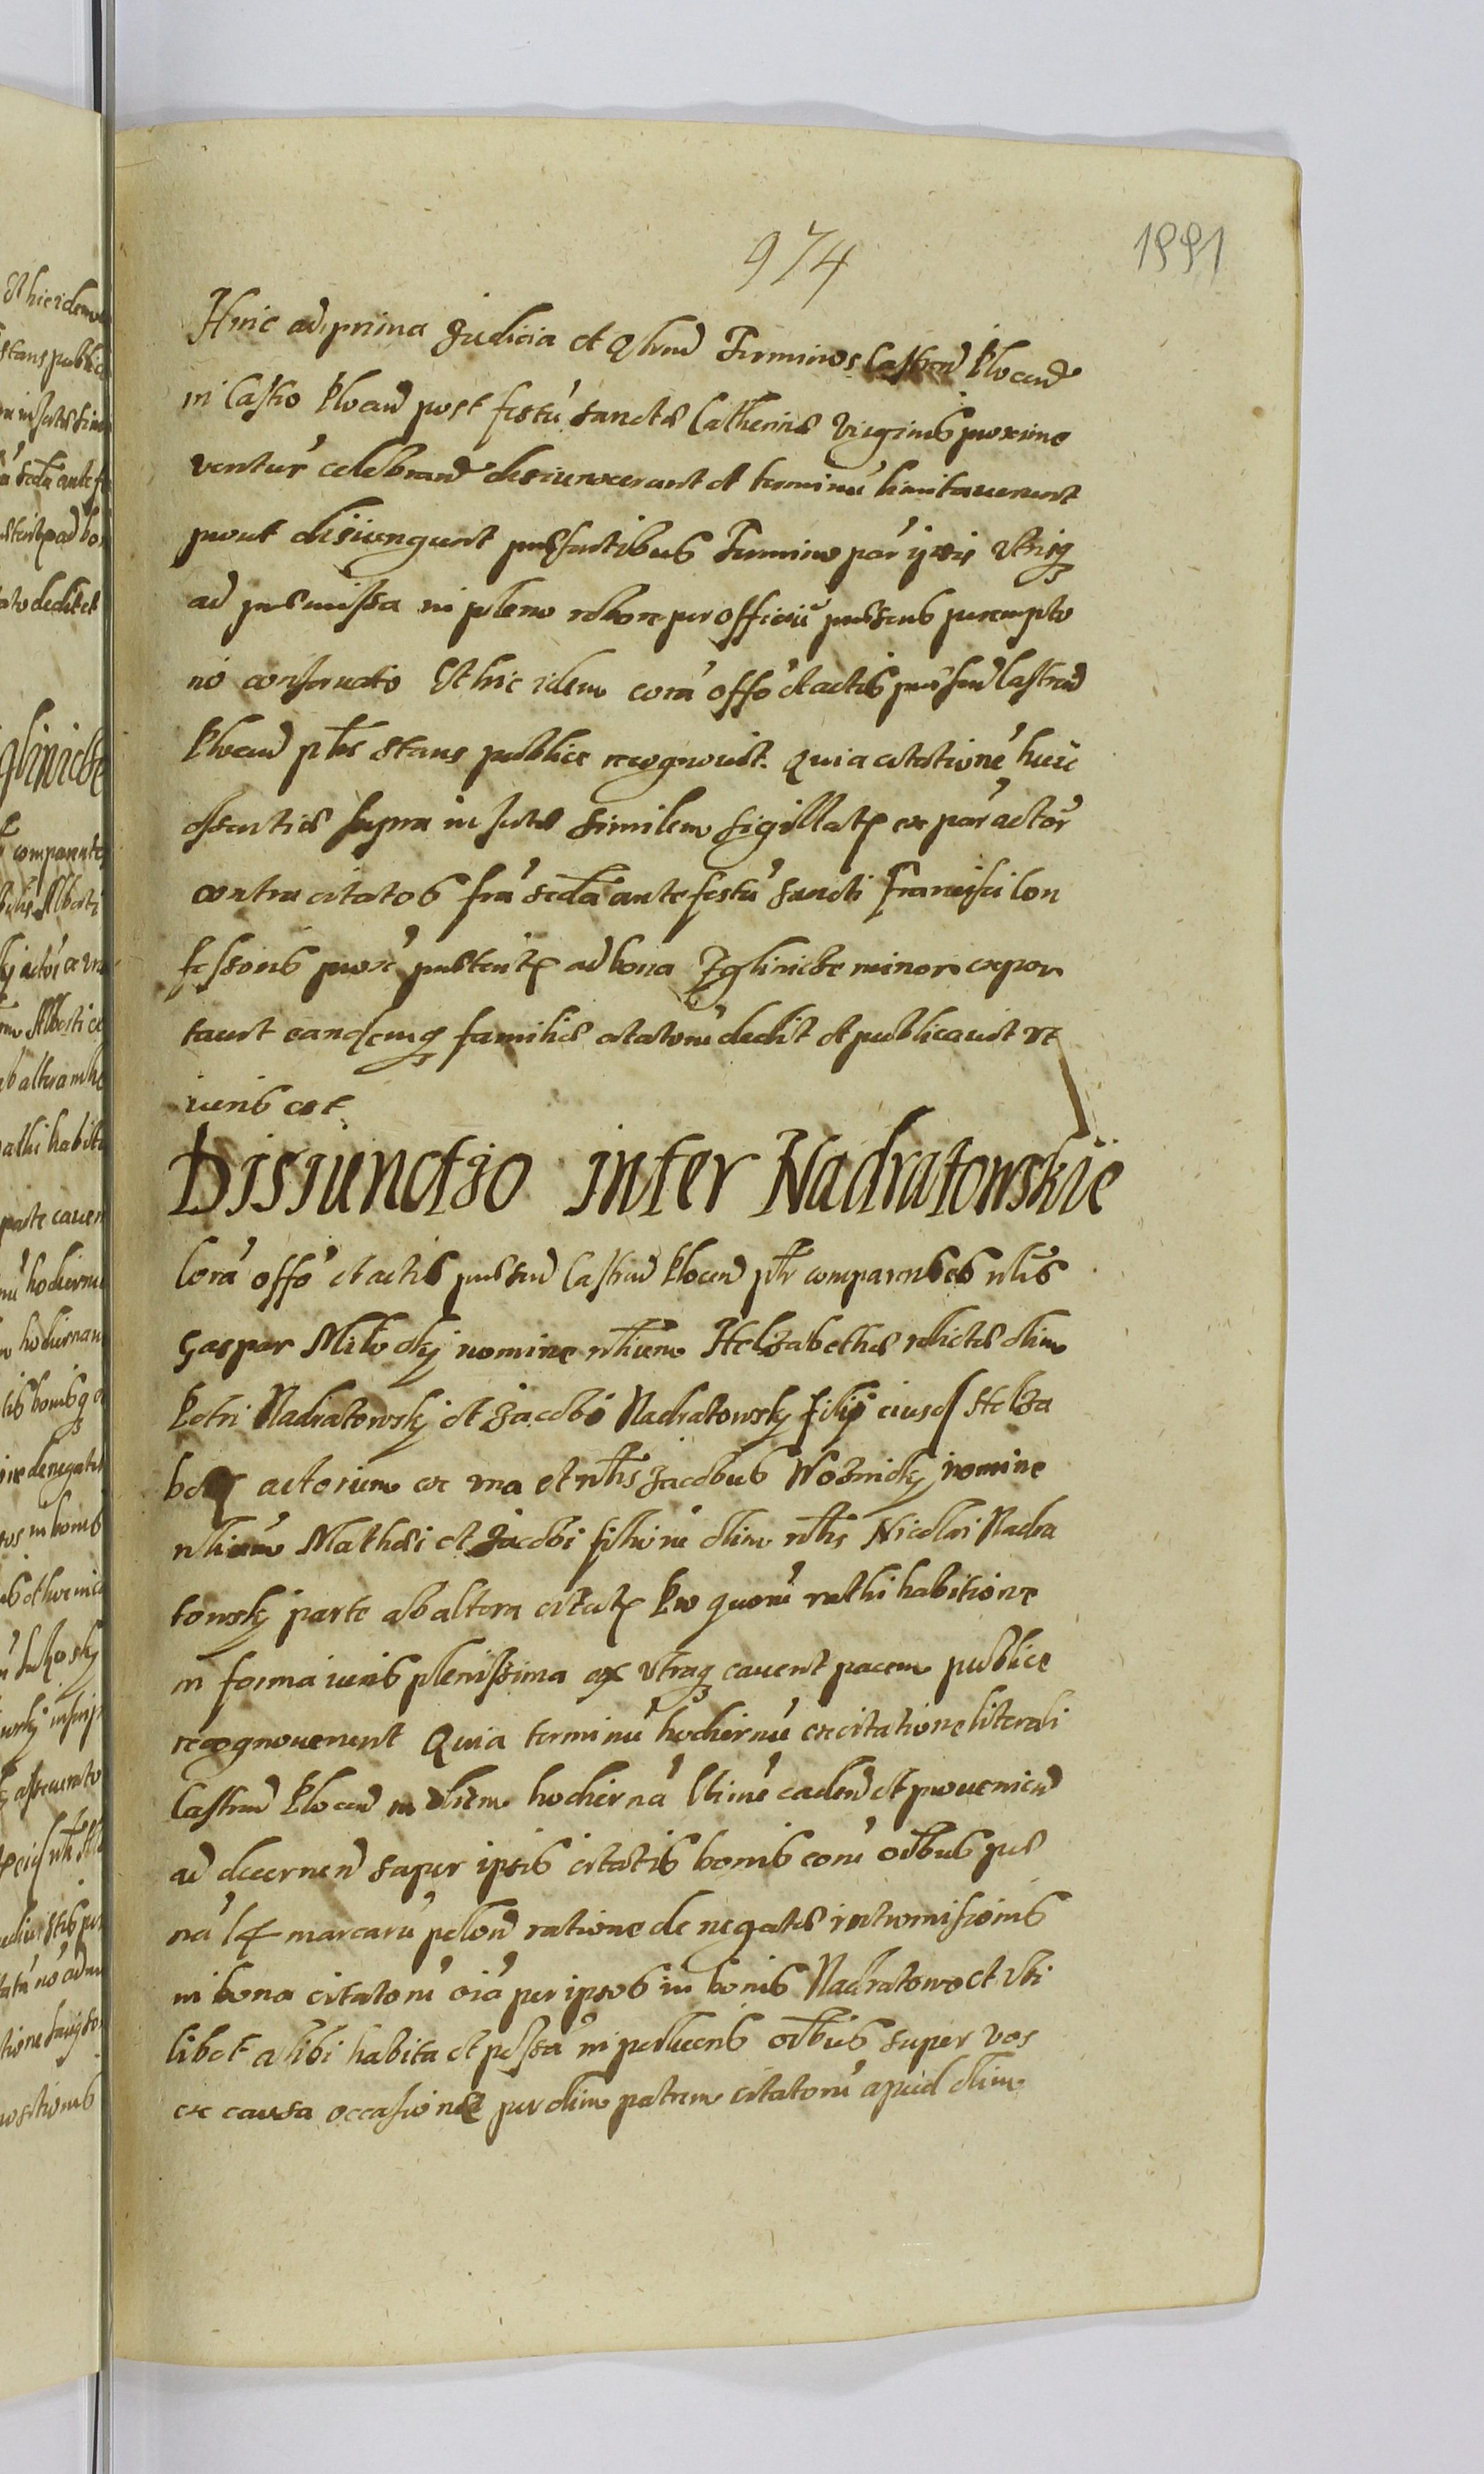 974
1991
Hinc ad prima Judicia et Qdrend Terminos Castren Plocen
in Castro Plocen post festu Sanctæ Catherinæ Virginis proxime
ventur celebrand disiunxerunt et terminu limitauerunt
prout disiungunt præsentibus Termino par ipsis vtrisq
ad præmissa in pleno robore per officiu præsens perempto
rio conseruato Et hic idem cora offo et actis præsen Castren
Plocen ptr stans publice recognouit. Quia citatione huic
sententiæ supra insertæ similem sigillat ex par actor
contra citatos fra secda ante festu Sancti Francisci Con
fessoris prox præterit ad bona Iglinicze minor expor
tauit eandemq familiæ citatoru dedit et publicauit vt
iuris est
Disiunctio inter Nadratowskie
Cora offo et actis præsen Castren Plocen ptr comparentes nlis
Gaspar Milodkj nomine nlium Helzabethæ relictæ olim
Petri Nadratowskj et Jacobi Nadratowskj filij eiusd Helza
beth actorum ex vna et nlis Jacobus Woznickj nomine
nlium Mathæi et Jacobi filioru olim nlis Nicolai Nadra
towskj parte ab altera citat Pro quoru rathihabitione
in forma iuris plenissima ex vtraq cauent pacem publice
recognouerunt Quia terminu hodiernu ex citatione literali
Castren Plocen in diem hodierna vtrinq cadend et prouenien
ad decernend super ipsis citatis bonis eoru oibus pæ
na 14 marcaru polon ratione denegatæ intromissionis
in bona citatoru oia per ipsos in bonis Nadratowo et vbi
libet alibi habita et possa in pecuniis oibus super vos
ex causa occasione per olim patrem citatoru apud olim